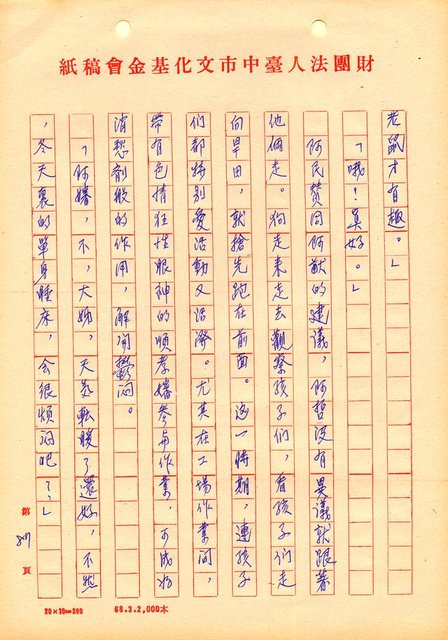 財團法人臺中市文化基金會稿紙
老鼠才有趣。」
「哦！真好。」
阿民贊同阿猷的建議，阿哲沒有異議就跟著
他倆走。狗走來走去觀察孩子們，看孩子們走
向旱田，就搶先跑在前面。這一時期，連孩子
們都特別愛活動又活潑。尤其在工場作業間，
帶有色情狂性眼神的順孝嬸參與作業，可成為
清愁劑般的作用，解悶鬱悶。
「阿嬸，不，大姊，天氣転暖了還好，不然
，冬天裏的單身睡床，会很煩悶吧？」
第 頁
20×10=200
68.3.2,000本